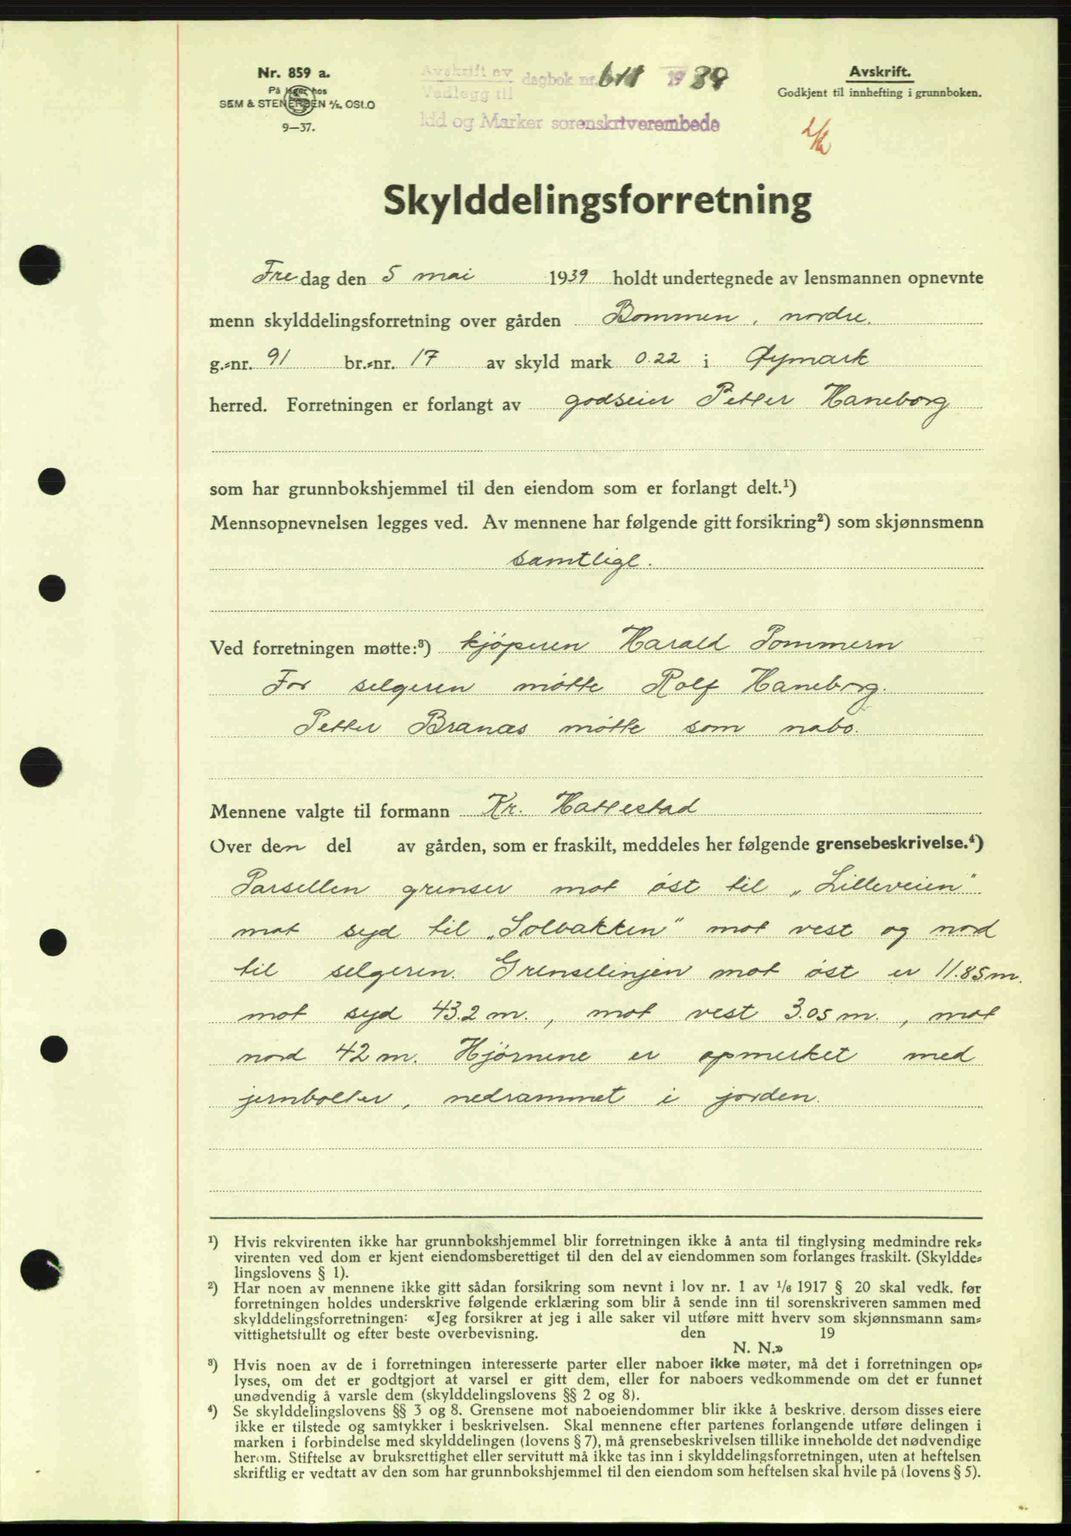 Nr. 859 a.
På lager hos
SEM & STENERSEN A/S. OSLO
9—37.
Avskrift av
Vedlegg til
dagbok nr. 611 1939
Idd og Marker sorenskriverembede
Avskrift.
Godkjent til innhefting i grunnboken.
Skylddelingsforretning
Fredag den 5 mai 1939 holdt undertegnede av lensmannen opnevnte
menn skylddelingsforretning over gården Bommen, nordre.
g.-nr. 91 br.-nr. 17 av skyld mark 0.22 i Øymark
herred. Forretningen er forlangt av godseier Petter Haneborg
som har grunnbokshjemmel til den eiendom som er forlangt delt.¹)
Mennsopnevnelsen legges ved. Av mennene har følgende gitt forsikring²) som skjønnsmenn
samtlige.
Ved forretningen møtte:³) kjöperen Harald Pommern
For selgeren mötte Rolf Haneborg.
Petter Branæs mötte som nabo.
Mennene valgte til formann Kr. Hattestad
Over den del av gården, som er fraskilt, meddeles her følgende grensebeskrivelse.⁴)
Parsellen grenser mot öst til "Lilleveien"
mot syd til "Solbakken" mot vest og nord
til selgeren. Grenselinjen mot öst er 11.85 m.
mot syd 43.2 m., mot vest 3.05 m., mot
nord 42 m. Hjörnene er opmerket med
jernbolter, nedrammet i jorden.
¹) Hvis rekvirenten ikke har grunnbokshjemmel blir forretningen ikke å anta til tinglysing medmindre rek-
virenten ved dom er kjent eiendomsberettiget til den del av eiendommen som forlanges fraskilt. (Skyldde-
lingslovens § 1).
²) Har noen av mennene ikke gitt sådan forsikring som nevnt i lov nr. 1 av 1/6 1917 § 20 skal vedk. før
forretningen holdes underskrive følgende erklæring som blir å sende inn til sorenskriveren sammen med
skylddelingsforretningen: «Jeg forsikrer at jeg i alle saker vil utføre mitt hverv som skjønnsmann sam-
vittighetsfullt og efter beste overbevisning. den 19
N. N.»
³) Hvis noen av de i forretningen interesserte parter eller naboer ikke møter, må det i forretningen op-
lyses, om det er godtgjort at varsel er gitt dem, eller for naboers vedkommende om det er funnet
unødvendig å varsle dem (skylddelingslovens §§ 2 og 8).
⁴) Se skylddelingslovens §§ 3 og 8. Grensene mot naboeiendommer blir ikke å beskrive, dersom disses eiere
ikke er tilstede og samtykker i beskrivelsen. Skal mennene efter partenes forlangende utføre delingen i
marken i forbindelse med skylddelingen (lovens § 7), må grensebeskrivelsen tillike inneholde det nødvendige
herom. Stiftelse av bruksrettighet eller servitutt må ikke tas inn i skylddelingsforretningen, uten at heftelsen
skriftlig er vedtatt av den som har grunnbokshjemmel til den eiendom som heftelsen skal hvile på (lovens § 5).